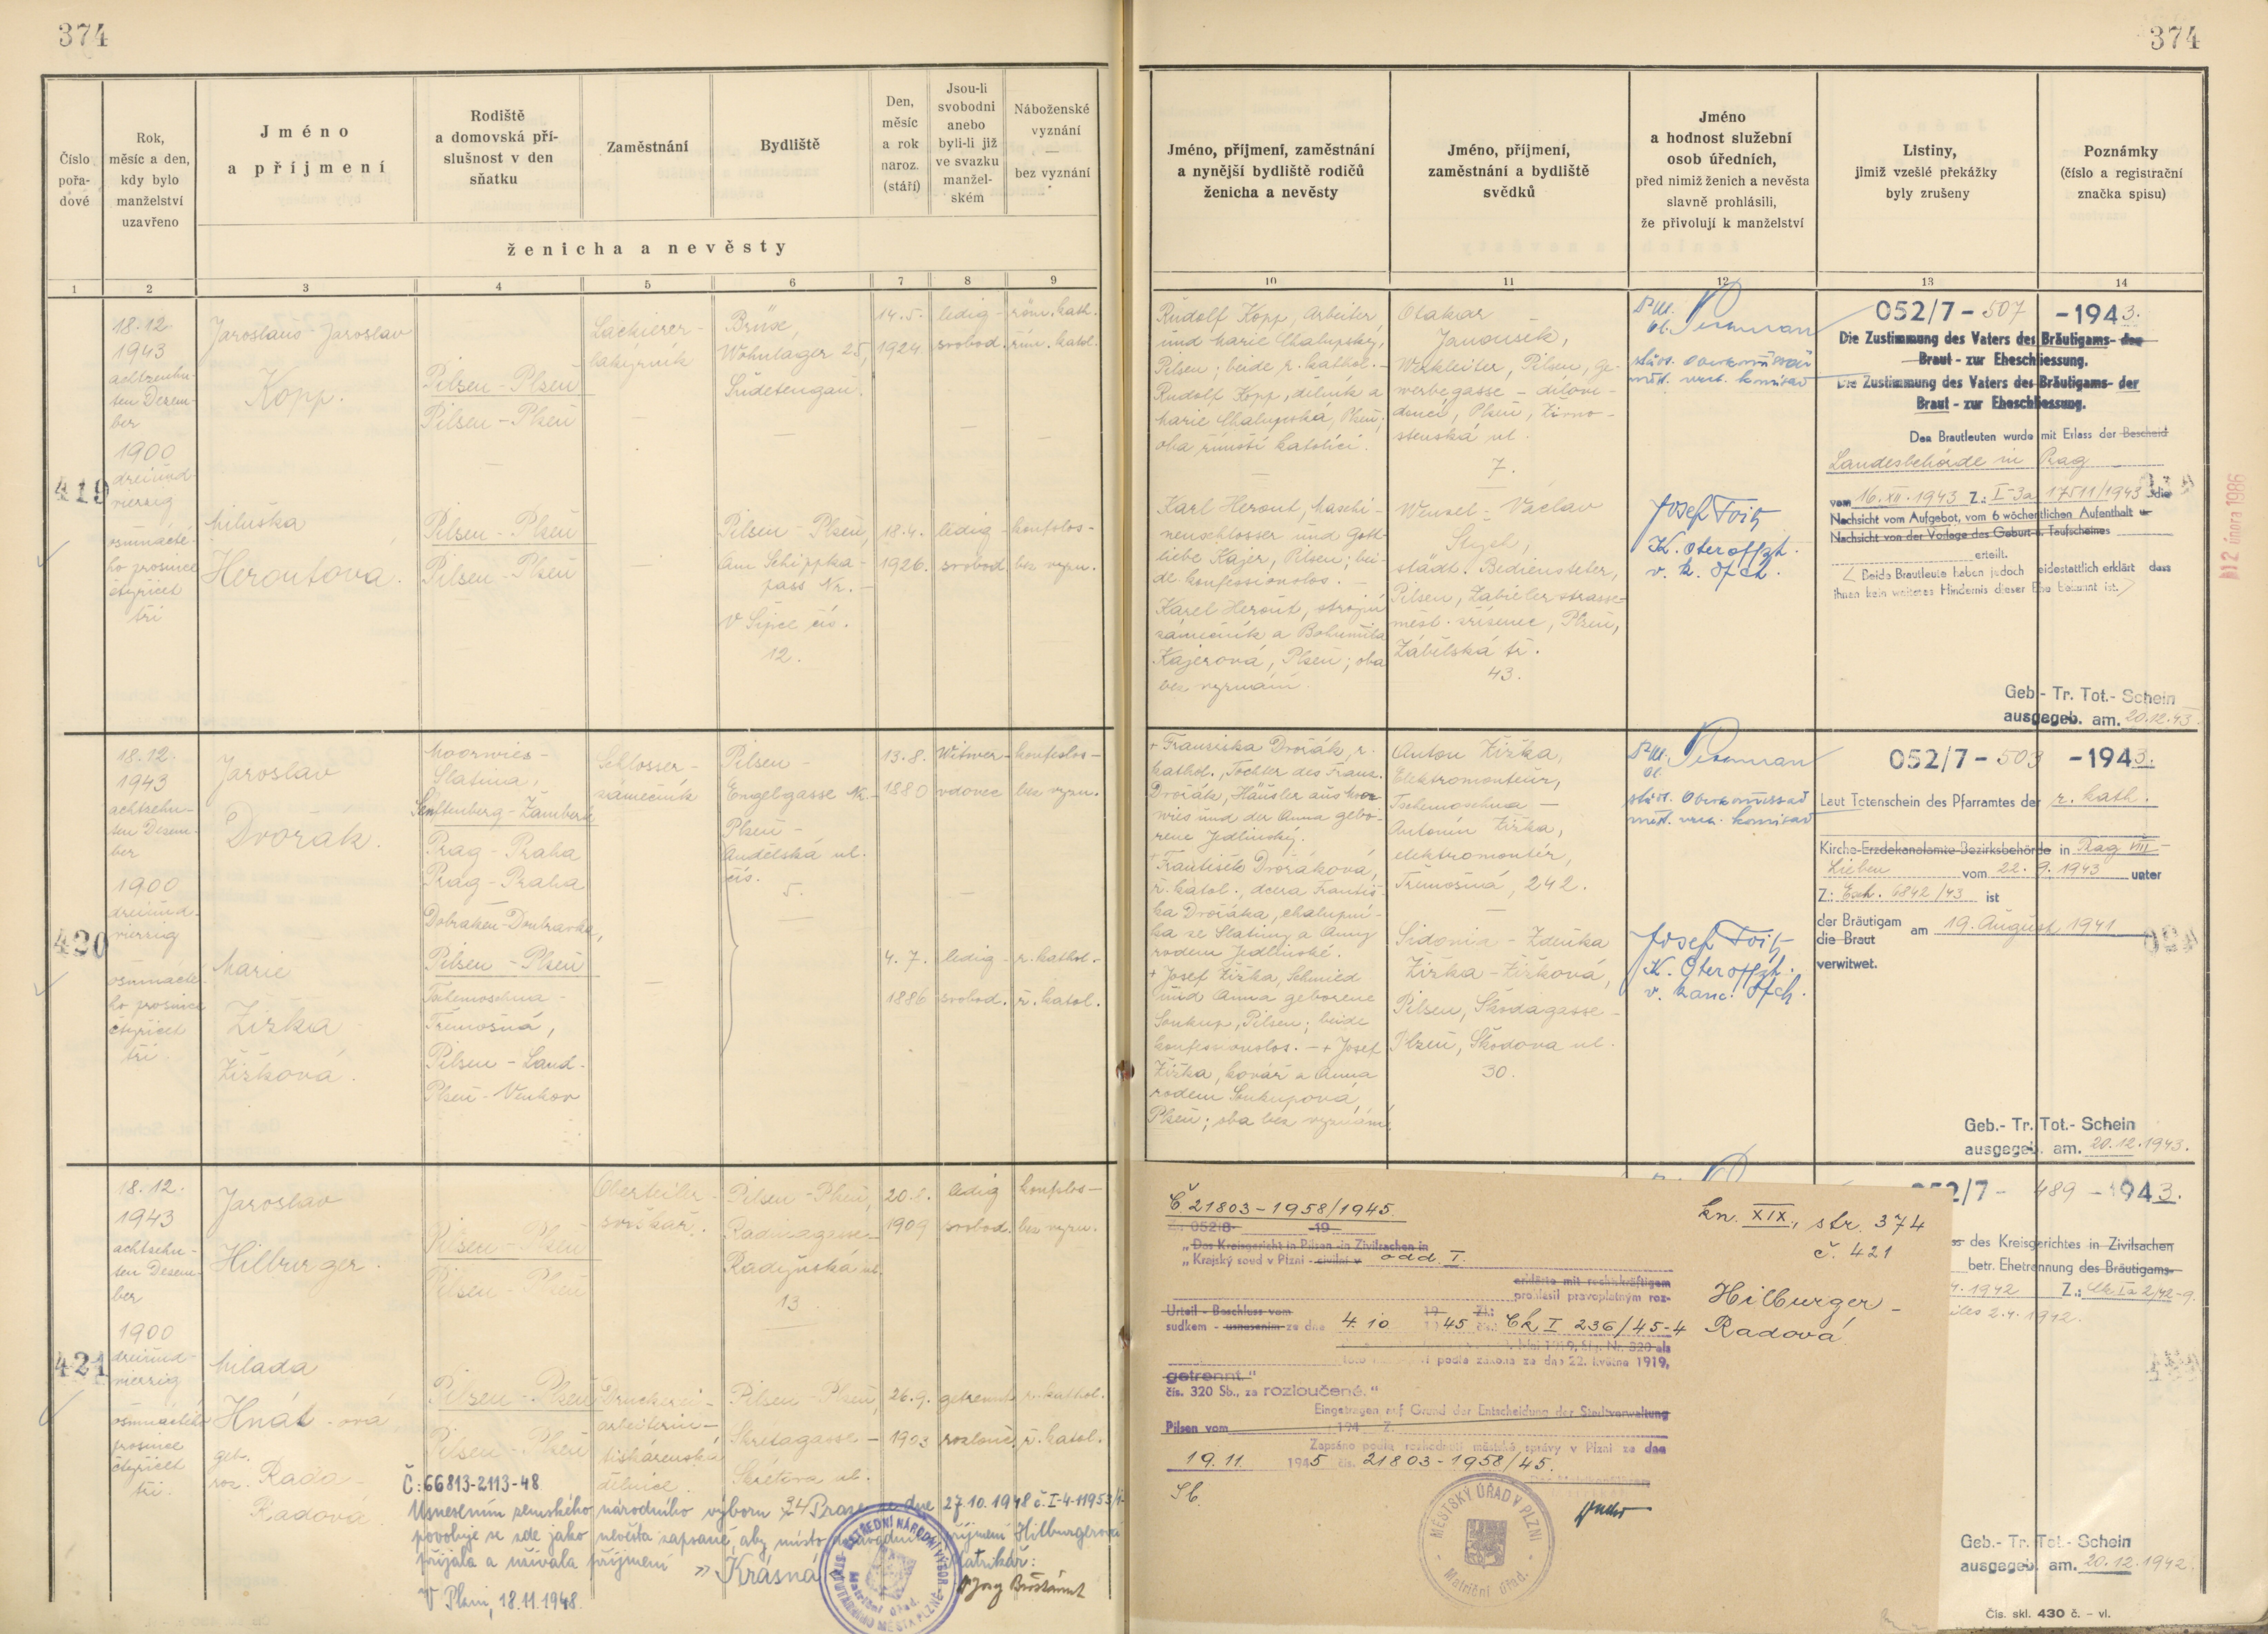 374
374
Číslo
pořa-
dové
Rok,
měsíc a den,
kdy bylo
manželství
uzavřeno
Jméno
a příjmení
Rodiště
a domovská pří-
slušnost v den
sňatku
Zaměstnání
Bydliště
Den,
měsíc
a rok
naroz.
(stáří)
Jsou-li
svobodni
anebo
byli-li již
ve svazku
manžel-
ském
Náboženské
vyznání
—
bez vyznání
ženicha a nevěsty
Jméno, příjmení, zaměstnání
a nynější bydliště rodičů
ženicha a nevěsty
Jméno, příjmení,
zaměstnání a bydliště
svědků
Jméno
a hodnost služební
osob úředních,
před nimiž ženich a nevěsta
slavně prohlásili,
že přivolují k manželství
Listiny,
jimiž vzešlé překážky
byly zrušeny
Poznámky
(číslo a registrační
značka spisu)
1 2 3 4 5 6 7 8 9
10 11 12 13 14
419
18.12.
1943
achtzehn-
ten Dezem-
ber
1900
dreiund-
vierzig
osmnácté-
ho prosince
čtyřicet
tři
Jaroslaus - Jaroslav
Kopp.
Pilsen - Plzeň
Pilsen - Plzeň
Lackierer -
lakýrník
Brüx,
Wohnlager 25,
Sudetengau.
14.5.
1924
ledig -
svobod.
röm. kath.
řím. katol.
Miluška
Heroutová.
Pilsen - Plzeň
Pilsen - Plzeň
Pilsen - Plzeň,
Am Schippka-
pass Nr. -
V Šipce čís.
12.
18.4.
1926.
ledig -
svobod
konfslos -
bez vyzn.
Rudolf Kopp, Arbeiter,
und Marie Chalupsky,
Pilsen; beide r. kathol. -
Rudolf Kopp, dělník a
Marie Chalupská, Plzeň;
oba římští katolíci.
Karl Herout, Maschi-
nenschlosser und Gott-
liebe Kajer, Pilsen; bei-
de konfessionslos. -
Karel Herout, strojní
zámečník a Bohumila
Kajerová, Plzeň; oba
bez vyznání.
Otakar
Janoušek,
Werkleiter, Pilsen, Ge-
werbegasse - dílove-
doucí, Plzeň, Živno-
stenská ul.
7.
Wenzel - Václav
städt. Bediensteter,
Pilsen, Zabieler strasse -
měst. zřízenec, Plzeň,
Zábělská tř.
43.
Josef Toitz
K. Oteroffzt.
052/7 - 507 - 1943.
Die Zustimmung des Vaters des Bräutigams- der
Braut - zur Eheschliessung.
Die Zustimmung des Vaters des Bräutigams- der
Braut - zur Eheschliessung.
Den Brautleuten wurde mit Erlass der Bescheid
Landesbehörde in Prag
vom 16.XII.1943 Z.: I-3a 17511/1943 die
Nachsicht vom Aufgebot, vom 6 wöchentlichen Aufenthalt u-
Nachsicht von der Vorlage des Geburt- u. Taufscheines
erteilt.
Beide Brautleute haben jedoch eidestattlich erklärt dass
ihnen kein weiteres Hindernis dieser Ehe bekannt ist.
Geb.- Tr. Tot.- Schein
ausgegeb. am. 20.12.43.
12 února 1986
420
18.12.
1943
achtzehn-
ten Dezem-
ber
1900
dreiund-
vierzig
osmnácté-
ho prosince
čtyřicet
tři.
Jaroslav
Dvořák.
Moorwies -
Slatina,
Senftenberg - Žamberk
Prag - Praha
Prag - Praha
Schlosser -
zámečník
Pilsen -
Engelgasse Nr. -
Plzeň -
Andělská ul.
čís.
5.
13.8.
1880
Witwer -
vdovec
konfeslos -
bez vyzn.
Marie
Žižka -
Žižková.
Dobraken - Doubravka,
Pilsen - Plzeň
Tschemoschna -
Třemošná,
Pilsen - Land -
Plzeň - Venkov
4.7.
1886
ledig -
svobod.
r. kathol. -
ř. katol.
+ Franziska Dvořák, r.
kathol., Tochter des Franz
Dvořák, Häusler aus Moor-
wies und der Anna gebo-
rene Jedlinský.
+ Františka Dvořáková,
ř. katol., dcera Františ-
ka Dvořáka, chalupní-
ka ze Slatiny a Anny
rodem Jedlinské.
+ Josef Žižka, Schmied
und Anna geborene
Soukup, Pilsen; beide
konfessionslos. - + Josef
Žižka, kovář a Anna
rodem Soukupová,
Plzeň; oba bez vyznání.
Anton Žižka,
Elektromonteur,
Tschemoschna -
Antonín Žižka,
elektromontér,
Třemošná, 242.
Sidonia - Zdeňka
Žižka - Žižková,
Pilsen, Skodagasse -
Plzeň, Škodova ul.
30.
Josef Toitz
K. Oteroffzt.
052/7 - 503 - 1943.
Laut Totenschein des Pfarramtes der r. kath.
Kirche-Erzdekanalamte-Bezirksbehörde in Prag VIII -
Lieben vom 22.9.1943 unter
Z.: Exh. 6842/43 ist
der Bräutigam
die Braut am 19. August 1941
verwitwet.
Geb.- Tr. Tot.- Schein
ausgegeb. am. 20.12.1943.
421
18.12.
1943
achtzehn-
ten Dezem-
ber
1900
dreiund-
vierzig
osmnáctého
prosince
čtyřicet
tři.
Jaroslav
Hilburger.
Pilsen - Plzeň
Pilsen - Plzeň
Pilsen - Plzeň,
Radinagasse -
Radyňská ul.
13.
1909
ledig
svobod.
konfslos -
bez vyzn.
Milada
Hnát - ová
geb.
roz. Rada -
Radová.
Pilsen - Plzeň
Pilsen - Plzeň
Druckerei -
arbeiterin -
tiskárenská
dělnice.
Pilsen - Plzeň,
Skretagasse -
Škrétova ul.
26.9.
1903
getrennt
rozlouč.
r. kathol.
ř. katol.
Č: 66813-2113-48
Usnesením zemského národního výboru v Praze ze dne 27.10.1948
povoluje se zde jako nevěsta zapsané, aby místo příjmení Hilburgerová
přijala a užívala příjmení "Krásná
V Plzni, 18.11.1948.
Matrikář:
ÚSTŘEDNÍ NÁRODNÍ VÝBOR
STATUTÁRNÍHO MĚSTA PLZNĚ
Matriční úřad.
Č. 21803-1958/1945.
052/8- -19
„Das Kreisgericht in Pilsen -in Zivilsachen in
„Krajský soud v Plzni - civilní v odd I.
erklärte mit rechtskräftigem
prohlásil pravoplatným roz-
Urteil - Beschluss vom 19 Zl.:
sudkem - usnesením ze dne 4. 10 1945 čís.: Ck I 236/45-4
podle zákona ze dne 22. května 1919,
getrennt."
čís. 320 Sb., za rozloučené."
Eingetragen auf Grund der Entscheidung der Stadtverwaltung
Pilsen vom 194 Z.
Zapsáno podle rozhodnutí městské správy v Plzni ze dne
19. 11. 1945 čís. 21803-1958/45.
MĚSTSKÝ ÚŘAD V PLZNI
Matriční úřad.
kn. XIX., str. 374
č. 421
Hilburger -
Radová
052/7 - 489 - 1943.
des Kreisgerichtes in Zivilsachen
betr. Ehetrennung des Bräutigams-
Geb.- Tr. Tot.- Schein
ausgegeb. am. 20.12.1942.
Čís. skl. 430 č. - vl.